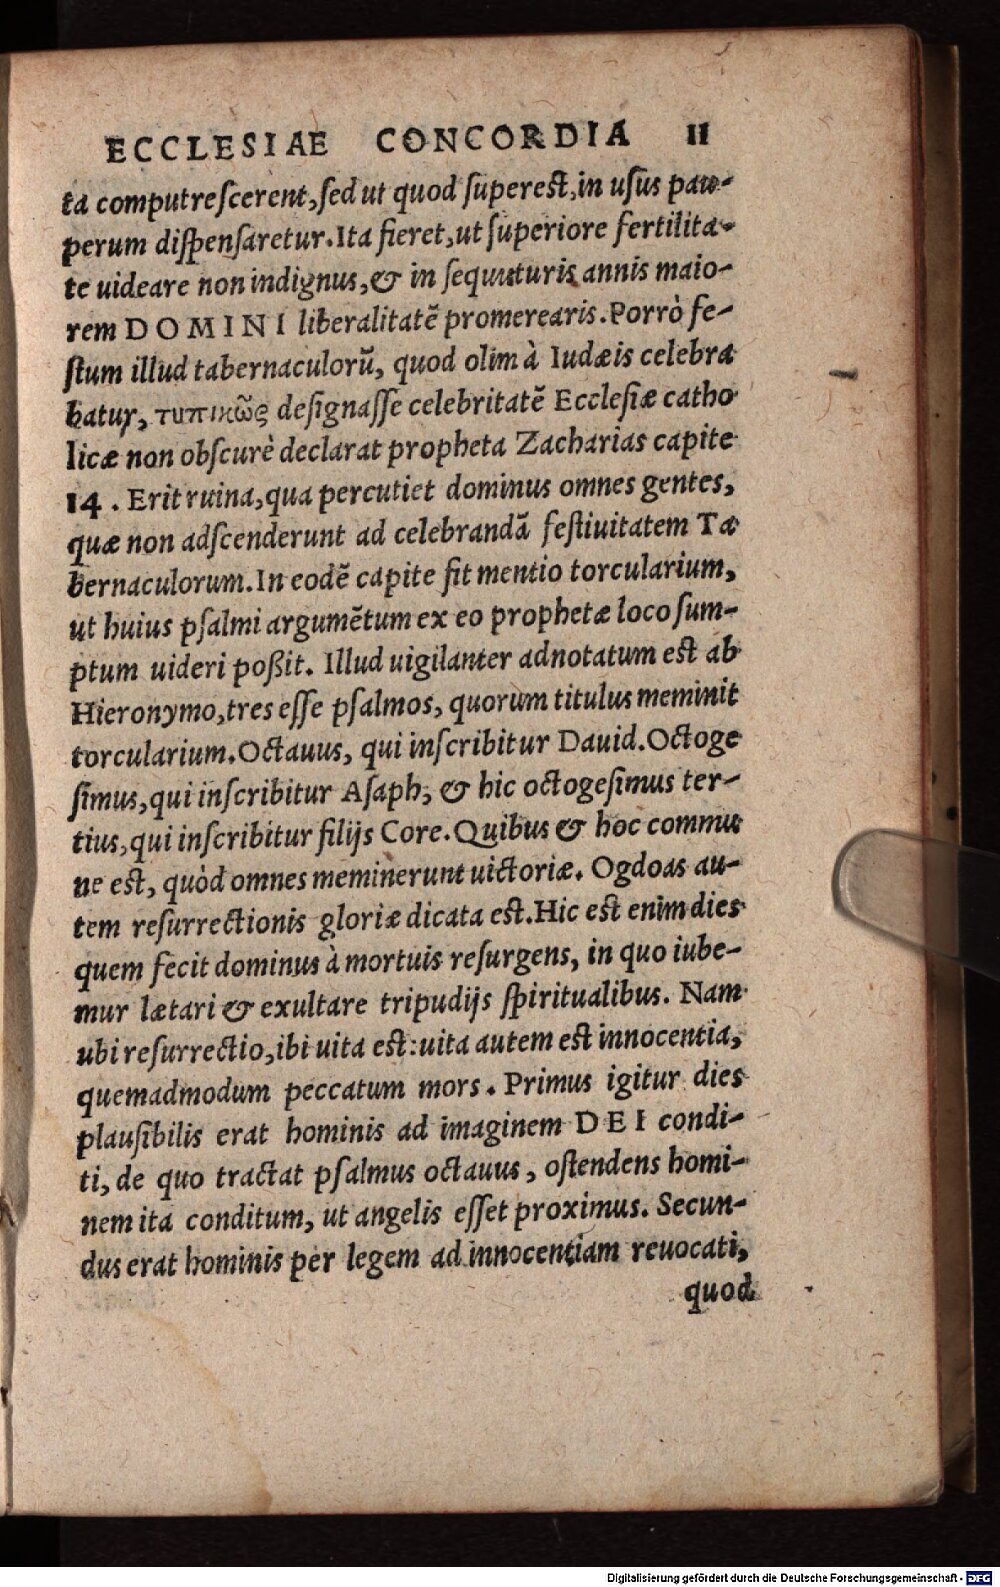 ECCLESIAE CONCORDIA 11
ta computrescerent, sed ut quod superest, in usus pau-
perum dispensaretur. Ita fieret, ut superiore fertilita-
te uideare non indignus, & in sequuturis annis maio-
rem DOMINI liberalitatẽ promerearis. Porrò fe-
stum illud tabernaculorũ, quod olim à Iudæis celebra
batur, τυπικῶς designasse celebritatẽ Ecclesiæ catho
licæ non obscurè declarat propheta Zacharias capite
14. Erit ruina, qua percutiet dominus omnes gentes,
quæ non adscenderunt ad celebrandã festiuitatem Ta
bernaculorum. In eodẽ capite fit mentio torcularium,
ut huius psalmi argumẽtum ex eo prophetæ loco sum-
ptum uideri poßit. Illud uigilanter adnotatum est ab
Hieronymo, tres esse psalmos, quorum titulus meminit
torcularium. Octauus, qui inscribitur Dauid. Octoge
simus, qui inscribitur Asaph, & hic octogesimus ter-
tius, qui inscribitur filijs Core. Quibus & hoc commu
ne est, quòd omnes meminerunt uictoriæ. Ogdoas au-
tem resurrectionis gloriæ dicata est. Hic est enim dies
quem fecit dominus à mortuis resurgens, in quo iube-
mur lætari & exultare tripudijs spiritualibus. Nam
ubi resurrectio, ibi uita est: uita autem est innocentia,
quemadmodum peccatum mors. Primus igitur dies
plausibilis erat hominis ad imaginem DEI condi-
ti, de quo tractat psalmus octauus, ostendens homi-
nem ita conditum, ut angelis esset proximus. Secun-
dus erat hominis per legem ad innocentiam reuocati,
quod
Digitalisierung gefördert durch die Deutsche Forschungsgemeinschaft - DFG